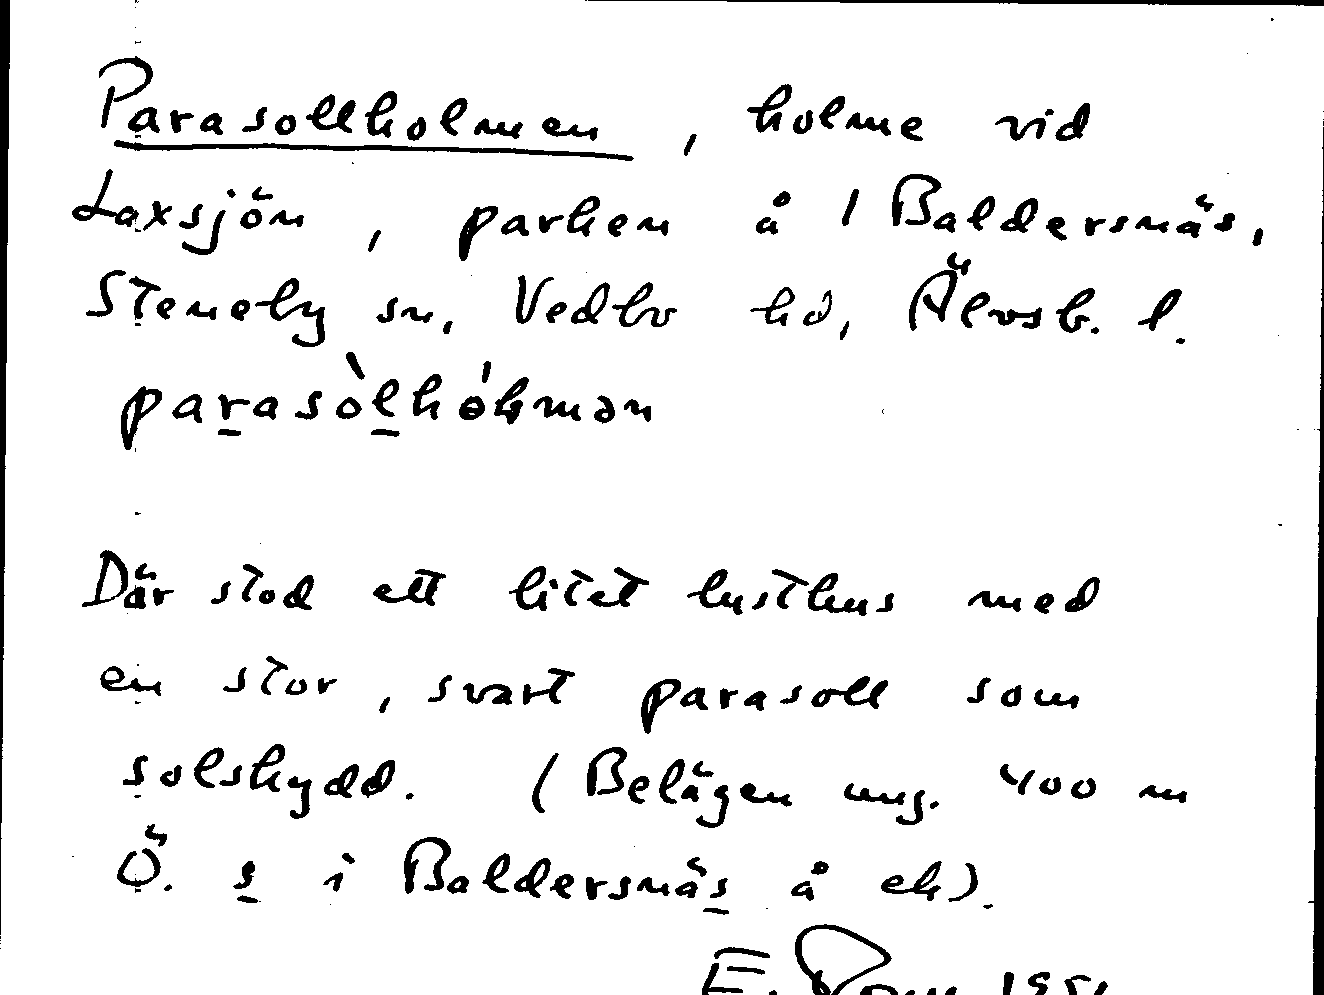 Parasollholmen, holme vid
Laxsjön, parken å 1 Baldersnäs,
Steneby sn, Vedbo hd, Älvsb. l.
parasòlhólmən
Där stod ett litet lusthus med
en stor, svart parasoll som
solskydd. (Belägen ung. 400 m
Ö. s i Baldersnäs å ek).
E.